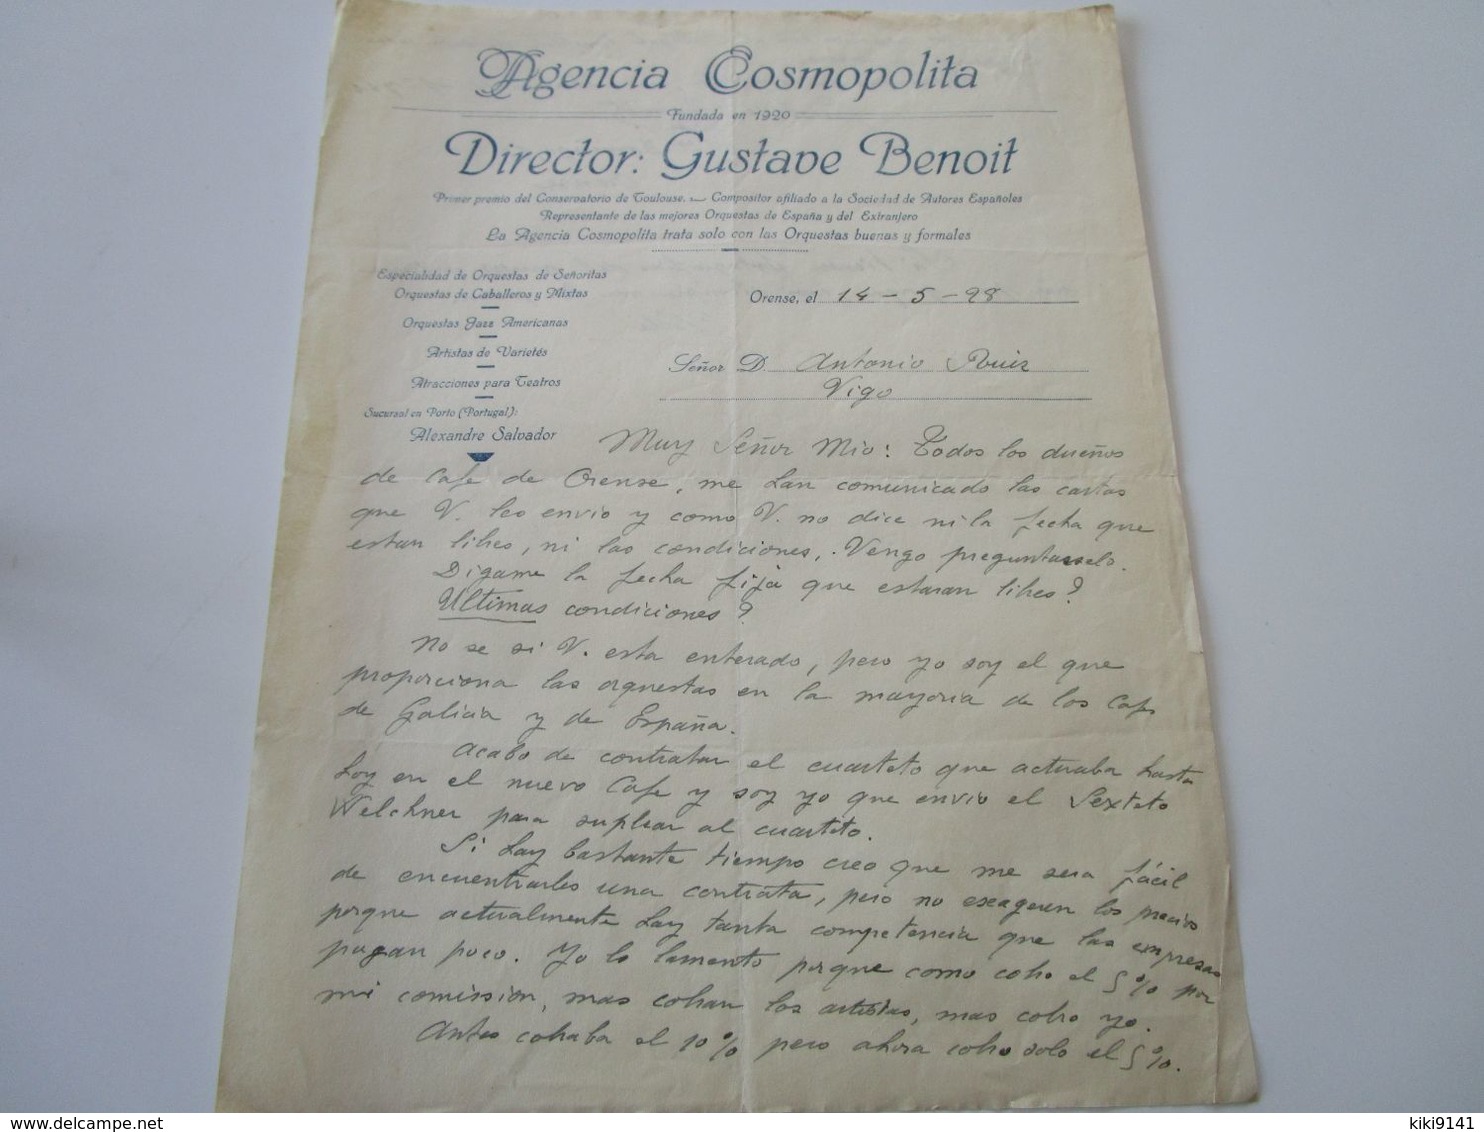 Agencia Cosmopolita
Fundada en 1920
Director: Gustave Benoit
Primer premio del Conservatorio de Toulouse. — Compositor afiliado a la Sociedad de Autores Españoles
Representante de las mejores Orquestas de España y del Extranjero
La Agencia Cosmopolita trata solo con las Orquestas buenas y formales
Especialidad de Orquestas de Señoritas
Orquestas de Caballeros y Mixtas
Orquestas Jazz Americanas
Artistas de Varietés
Atracciones para Teatros
Sucursal en Porto (Portugal):
Alexandre Salvador
Orense, el 14 - 5 - 28
Señor D. Antonio Ruiz
Vigo
Muy Señor Mio: Todos los dueños
de Cafe de Orense, me han comunicado las cartas
que V. les envio y como V. no dice ni la fecha que
estan libres, ni las condiciones, . Vengo preguntarselo.
Digame la fecha fija que estaran libres?
Ultimas condiciones?
No se si V. esta enterado, pero yo soy el que
proporciona las orquestas en la mayoria de los Cafes
de Galicia y de España.
Acabo de contratar el cuarteto que actuaba hasta
hoy en el nuevo Cafe y soy yo que envio el Sexteto
Welchner para suplear al cuarteto.
Si hay bastante tiempo creo que me sera fácil
de encuentrarles una contrata, pero no exageren los precios
porque actualmente hay tanta competencia que las empresas
pagan poco. Yo lo lamento porque como cobro el 5% por
mi comission, mas cobran los artistas, mas cobro yo.
Antes cobraba el 10% pero ahora cobro solo el 5%.
kiki9141